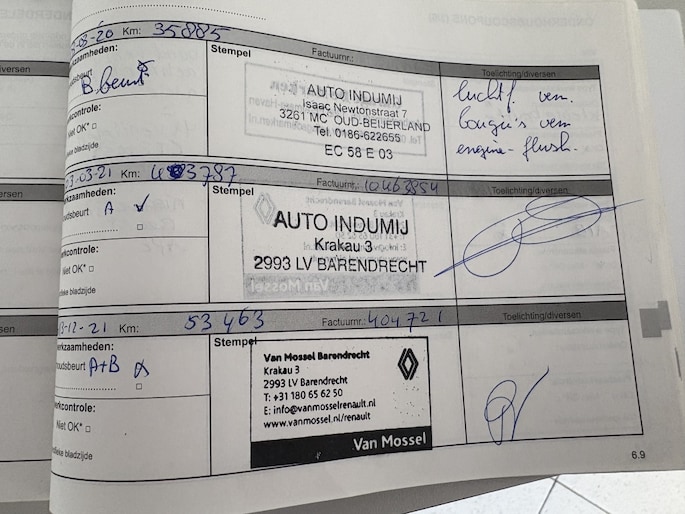 -03-20 Km: 35885
Stempel Factuurnr.: Toelichting/diversen
kzaamheden:
beurt B beurt
AUTO INDUMIJ
Isaac Newtonstraat 7
3261 MC OUD-BEIJERLAND
Tel. 0186-622655
EC 58 E 03
luchtf. verv.
bougie's verv
engine-flush.
controle:
Niet OK*
bladzijde
3-03-21 Km: 43787
Stempel Factuurnr.: 10463854 Toelichting/diversen
kzaamheden:
dsbeurt A
AUTO INDUMIJ
Krakau 3
2993 LV BARENDRECHT
Van Mossel
rkcontrole:
Niet OK*
fieke bladzijde
3-12-21 Km: 53463
Stempel Factuurnr.: 404721 Toelichting/diversen
erkzaamheden:
houdsbeurt A+B
Van Mossel Barendrecht
Krakau 3
2993 LV Barendrecht
T: +31 180 65 62 50
E: info@vanmosselrenault.nl
www.vanmossel.nl/renault
Van Mossel
rkcontrole:
Niet OK*
ifieke bladzijde
6.9